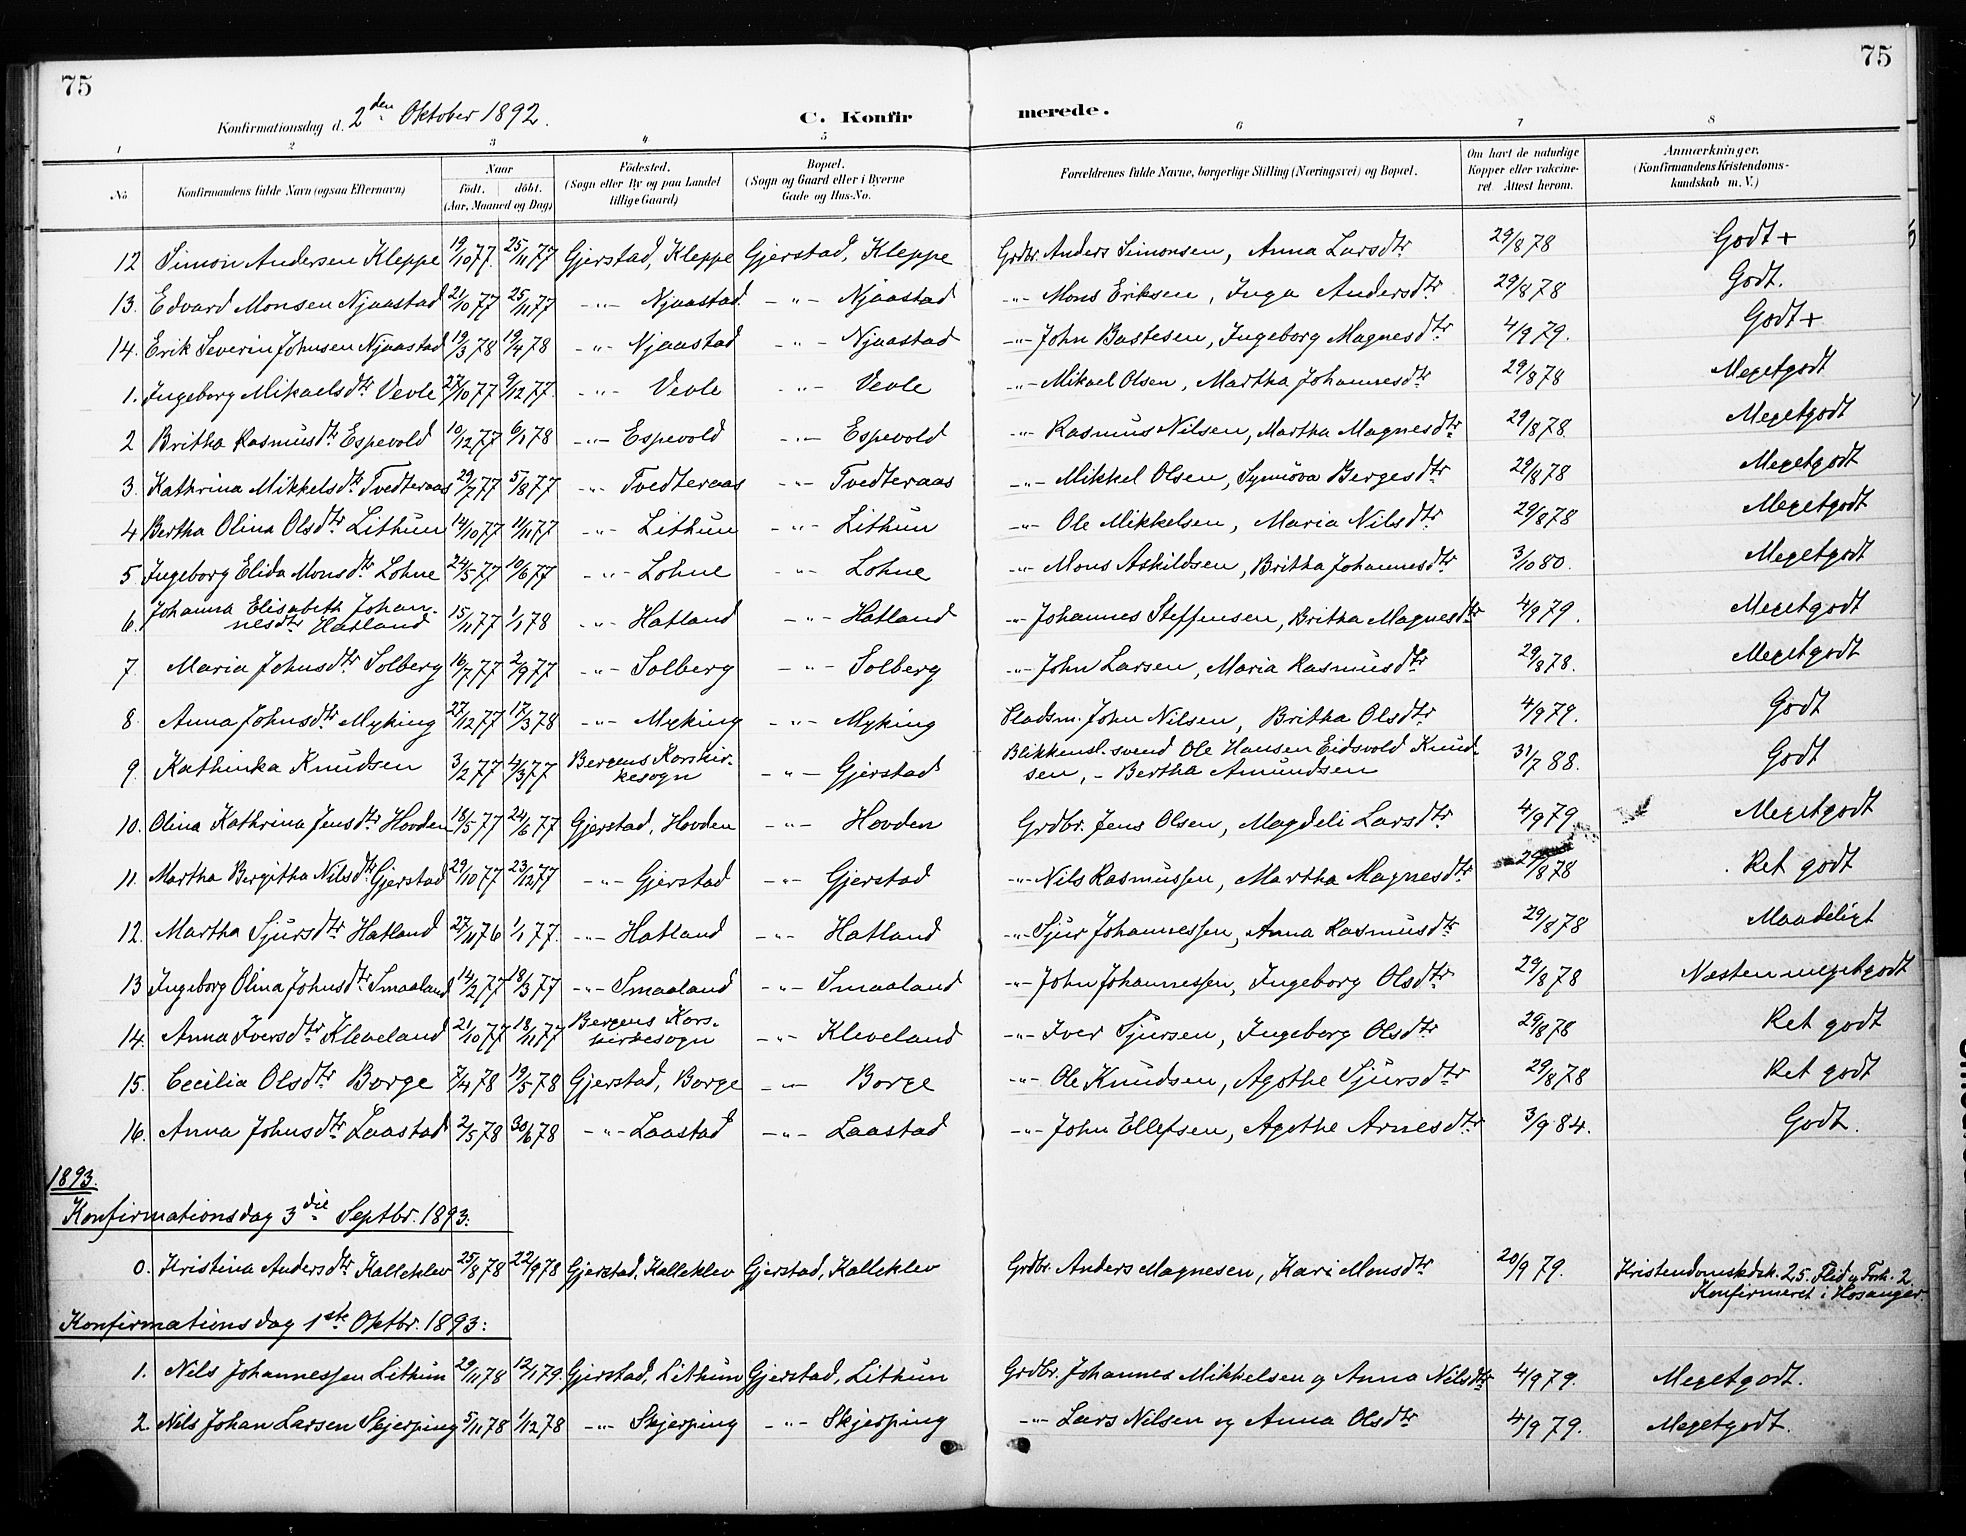 75
75
Konfirmationsdag d. 2den Oktober 1892.
C. Konfir
merede.
1 2 3 4 5 6 7 8
No Konfirmandens fulde Navn (ogsaa Efternavn) Naar födt. döbt. (Aar, Maaned og Dag) Födested. (Sogn eller By og paa Landet tillige Gaard) Bopæl. (Sogn og Gaard eller i Byerne Gade og Hus-No. Forældrenes fulde Navne, borgerlige Stilling (Næringsvei) og Bopæl. Om havt de naturlige Kopper eller vakcineret. Attest herom. Anmærkninger, (Konfirmandens Kristendomskundskab m. V.)
12 Simon Andersen Kleppe 19/10 77. 25/11 77 Gjerstad, Kleppe Gjerstad, Kleppe Grdbr. Anders Simonsen, Anna Larsdtr 29/8 78 Godt +
13. Edvard Monsen Njaastad 21/10 77 25/11 77 -"- Njaastad. -"- Njaastad -"- Mons Eriksen, Inga Andersdtr 29/8 78 Godt.
14. Erik Severin Johnsen Njaastad 19/3 78 19/4 78 -"- Njaastad -"- Njaastad -"- John Bastesen, Ingeborg Magnesdtr 4/9 79. Godt +
1. Ingeborg Mikaelsdtr Vevle 27/10 77 9/12 77. -"- Vevle -"- Vevle -"- Mikael Olsen, Martha Johannesdtr 29/8 78 Megetgodt
2 Britha Rasmusdtr Espevold 10/12 77 6/1 78 -"- Espevold -"- Espevold -"- Rasmus Nilsen, Martha Magnesdtr 29/8 78. Megetgodt
3. Kathrina Mikkelsdtr Tvedteraas 29/7 77 5/8 77 -"- Tvedteraas -"- Tvedteraas -"- Mikkel Olsen, Synnöva Bergesdtr 29/8 78 Megetgodt
4 Bertha Olina Olsdtr Lithun 14/10 77 11/11 77 -"- Lithun -"- Lithun -"- Ole Mikkelsen, Maria Nilsdtr 29/8 78 Megetgodt
5 Ingeborg Elida Monsdtr Lohne 24/5 77 10/6 77 -"- Lohne -"- Lohne -"- Mons Askildsen, Britha Johannesdtr 3/10 80. Megetgodt
6. Johanna Elisabeth Johan-
nesdtr Hatland 15/11 77 1/1 78 -"- Hatland -"- Hatland -"- Johannes Steffensen, Britha Magnesdtr 4/9 79. Megetgodt
7 Maria Johnsdtr Solberg 16/7 77 2/9 77 -"- Solberg -"- Solberg -"- John Larsen, Maria Rasmusdtr 29/8 78. Megetgodt
8. Anna Johnsdtr Myking 27/12 77 17/3 78 -"- Myking -"- Myking Pladsm. John Nilsen, Britha Olsdtr 4/9 79. Godt
9. Kathinka Knudsen 3/2 77 4/3 77 Bergens Korskir-
kesogn -"- Gjerstad Blikkensl. svend Ole Hansen Eidsvold Knud-
sen, - Bertha Amundsen 31/7 88. Godt
10. Olina Kathrina Jensdtr Hovden 18/5 77 24/6 77 Gjerstad, Hovden -"- Hovden Grdbr. Jens Olsen, Magdeli Larsdtr 4/9 79 Megetgodt
11. Martha Bergitha Nilsdtr Gjerstad 29/10 77 23/12 77 -"- Gjerstad -"- Gjerstad -"- Nils Rasmussen, Martha Magnesdtr 29/8 78 Ret godt
12. Martha Sjursdtr Hatland 27/11 76 1/1 77. -"- Hatland -"- Hatland -"- Sjur Johannessen, Anna Rasmusdtr 29/8 78 Maadeligt
13 Ingeborg Olina Johnsdtr Smaaland 14/2 77 18/3 77 -"- Smaaland -"- Smaaland -"- John Johannessen, Ingeborg Olsdtr 29/8 78 Næsten megetgodt
14. Anna Iversdtr Kleveland 21/10 77 18/11 77 Bergens Kors-
kirkesogn -"- Kleveland -"- Iver Sjursen, Ingeborg Olsdtr 29/8 78 Ret godt
15. Cecilia Olsdtr Borge 7/4 78 19/5 78 Gjerstad, Borge -"- Borge -"- Ole Knudsen, Agothe Sjursdtr 29/8 78 Ret godt
16. Anna Johnsdtr Laastad 2/5 78 30/6 78 -"- Laastad -"- Laastad -"- John Ellefsen, Agothe Arnesdtr 3/9 84. Godt.
1893.
Konfirmationsdag 3die Septbr. 1893:
0. Kristina Andersdtr Kalleklev 25/8 78 22/9 78 Gjerstad, Kalleklev Gjerstad, Kalleklev Grdbr. Anders Magnesen, Kari Monsdtr 20/9 79. Kristendomskdsk. 2,5. Flid og Forh. 2.
Konfirmeret i Hosanger.
Konfirmationsdag 1ste Oktbr. 1893:
1. Nils Johannessen Lithun 29/11 78 12/1 79. Gjerstad, Lithun Gjerstad, Lithun Grdbr. Johannes Mikkelsen og Anna Nilsdtr 4/9 79. Megetgodt.
2. Nils Johan Larsen Skjerping 5/11 78 1/12 78 -"- Skjerping -"- Skjerping -"- Lars Nilsen og Anna Olsdtr 4/9 79. Megetgodt.